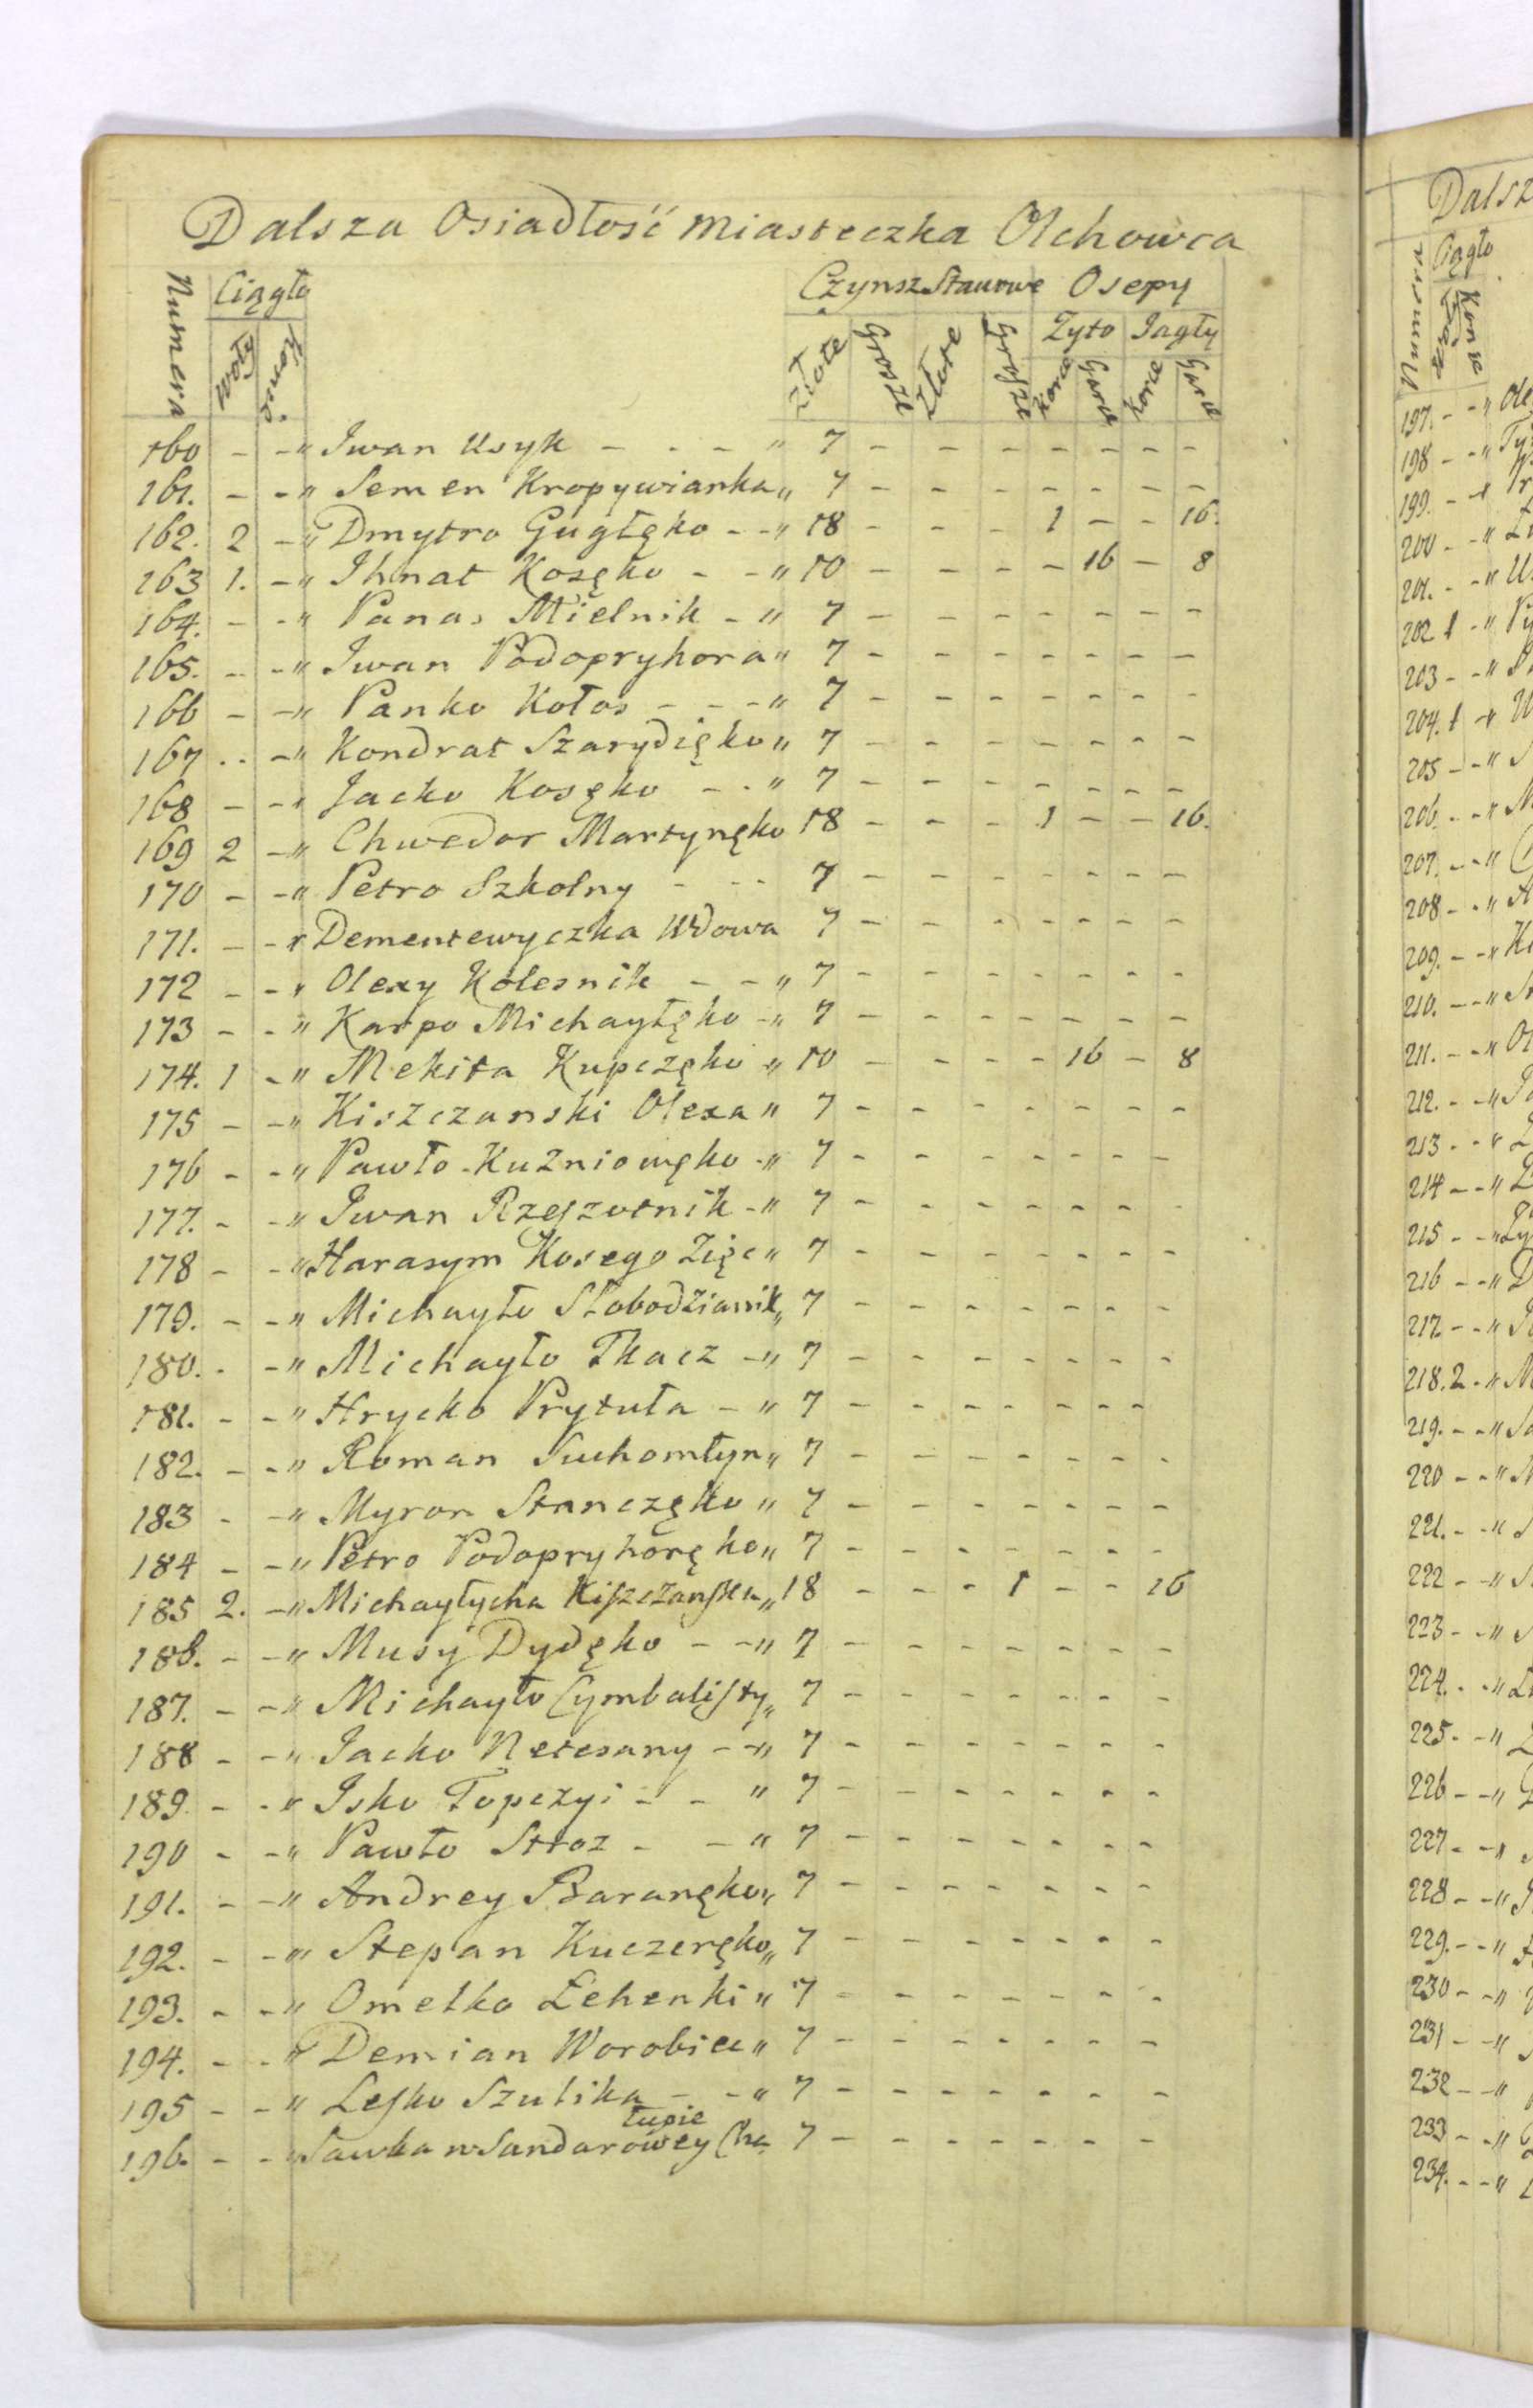 Dalsza Osiadłość Miasteczka Olchowca
Numera Ciągło Czynsz Stawowe Osepy
Woły Konie Złote Grosze Złote Grosze Zyto Jagły
Korce Garce Korce Garce
160 - - " Iwan Usyk - - - " 7 - - - - - - - -
161. - - " Semen Kropywianka " 7 - - - - - - - -
162. 2 - " Dmytro Gugłęko - - " 18 - - - 1 - - 16.
163 1. - " Ihnat Kosęko - - " 10 - - - - 16 - 8
164. - - " Panas Mielnik - " 7 - - - - - - - -
165. - - " Iwan Podopryhora " 7 - - - - - - - -
166 - - " Panko Kołos - - - " 7 - - - - - - - -
167 - - " Kondrat Szarydięko " 7 - - - - - - - -
168 - - " Jacko Kosęko - - " 7 - - - - - - - -
169 2 - " Chwedor Martynęko 18 - - - 1 - - 16.
170 - - " Petro Szkolny - - - 7 - - - - - - - -
171. - - " Dementewyczka Wdowa 7 - - - - - - - -
172 - - " Olexy Kolesnik - - " 7 - - - - - - - -
173 - - " Karpo Michayłęko - " 7 - - - - - - - -
174. 1 - " Mekita Kupczęko " 10 - - - - 16 - 8
175 - - " Kiszczanski Olexa " 7 - - - - - - - -
176 - - " Pawło Kuzniowęko - " 7 - - - - - - - -
177. - - " Iwan Rzeszotnik - " 7 - - - - - - - -
178 - - " Harasym Kosego Zięc " 7 - - - - - - - -
179. - - " Michayło Słobodzianik " 7 - - - - - - - -
180. - - " Michayło Tkacz - " 7 - - - - - - - -
181. - - " Hrycko Prytuła - " 7 - - - - - - - -
182. - - " Roman Suchomłyn " 7 - - - - - - - -
183 - - " Myron Stanczęko " 7 - - - - - - - -
184 - - " Petro Podopryhoręko " 7 - - - - - - - -
185 2. - " Michayłycha Kiszczanska " 18 - - - 1 - - 16
186. - - " Musÿ Dydęko - - " 7 - - - - - - - -
187. - - " Michayło Cymbalisty " 7 - - - - - - - -
188 - - " Jacko Netesany - - " 7 - - - - - - - -
189. - - " Isko Topczyi - - " 7 - - - - - - - -
190 - - " Pawło Stroz - - " 7 - - - - - - - -
191. - - " Andrey Baranęko " 7 - - - - - - - -
192. - - " Stepan Kuczeręko " 7 - - - - - - - -
193. - - " Omelko Lehenki " 7 - - - - - - - -
194. - - " Demian Worobiec " 7 - - - - - - - -
195 - - " Lesko Szulika - - " 7 - - - - - - - -
196. - - " Sawka w Sandarowey Cha łupie 7 - - - - - - - -
Dalsz
Numera Ciągło
Konie
197. - - "
198 - - "
199. - - "
200 - - "
201. - - "
202 1 - "
203 - - "
204. 1 - "
205 - - "
206. - - "
207. - - "
208 - - "
209. - - "
210. - - "
211. - - "
212. - - "
213 - - "
214 - - "
215 - - "
216 - - "
217. - - "
218. 2 - "
219. - - "
220 - - "
221. - - "
222 - - "
223 - - "
224. - - "
225. - - "
226 - - "
227. - - "
228 - - "
229. - - "
230 - - "
231 - - "
232 - - "
233 - - "
234. - - "